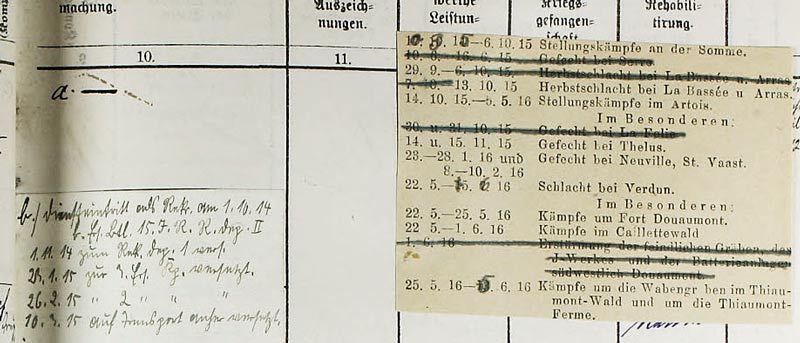 machung.
Auszeich=
nungen.
Leistun=
Kriegs=
gefangen=
schaft
Rehabili=
tirung.
10.
11.
a. —
b.) Diensteintritt als Rek. am 1.10.14
b. Ers. Btl. 15. J. R. R. dep. II
1.11.14 zum Rek. dep. 1 vers.
28.1.15 zur 3. Ers. Kp. versetzt.
26.2.15 " 2 " " "
10.3.15 auf Transport anher versetzt.
15—6. 10. 15 Stellungskämpfe an der Somme.
10. 6.—16. 6. 15 Gefecht bei Serre
29. 9.—6. 10. 15. Herbstschlacht bei La Bassée u. Arras
7. 10.—13. 10. 15 Herbstschlacht bei La Bassée u Arras.
14. 10. 15.—5. 5. 16 Stellungskämpfe im Artois.
Im Besonderen:
30. u. 31. 10. 15 Gefecht bei La Folie
14. u. 15. 11. 15 Gefecht bei Thelus.
23.—28. 1. 16 und Gefecht bei Neuville, St. Vaast.
8.—10. 2. 16
22. 5.— 16 Schlacht bei Verdun.
Im Besonderen:
22. 5.—25. 5. 16 Kämpfe um Fort Douaumont.
22 5.—1. 6. 16 Kämpfe im Caillettewald
1. 6. 16 Erstürmung der feindlichen Gräben, des
J-Werkes und der Batterieanlagen
südwestlich Douaumont.
25. 5. 16— . 6. 16 Kämpfe um die Wabengr ben im Thiau-
mont-Wald und um die Thiaumont-
Ferme.